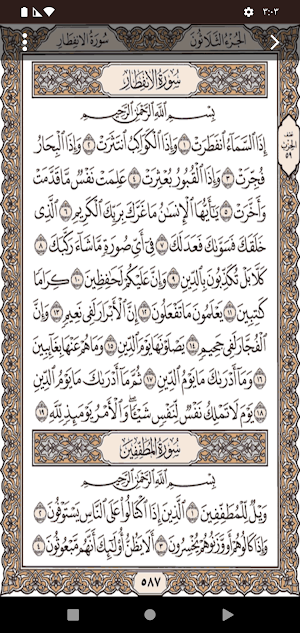 ٣:٠٣
سُورَةُ الِانفِطَارِ الجُزْءُ الثَّلَاثُونَ
سُورَةُ الِانفِطَارِ
بِسْمِ اللَّهِ الرَّحْمَٰنِ الرَّحِيمِ
إِذَا السَّمَاءُ انفَطَرَتْ ١ وَإِذَا الْكَوَاكِبُ انتَثَرَتْ ٢ وَإِذَا الْبِحَارُ
فُجِّرَتْ ٣ وَإِذَا الْقُبُورُ بُعْثِرَتْ ٤ عَلِمَتْ نَفْسٌ مَّا قَدَّمَتْ
وَأَخَّرَتْ ٥ يَٰأَيُّهَا الْإِنسَٰنُ مَا غَرَّكَ بِرَبِّكَ الْكَرِيمِ ٦ الَّذِي
خَلَقَكَ فَسَوَّىٰكَ فَعَدَلَكَ ٧ فِي أَيِّ صُورَةٍ مَّا شَاءَ رَكَّبَكَ ٨
كَلَّا بَلْ تُكَذِّبُونَ بِالدِّينِ ٩ وَإِنَّ عَلَيْكُمْ لَحَٰفِظِينَ ١٠ كِرَامًا
كَٰتِبِينَ ١١ يَعْلَمُونَ مَا تَفْعَلُونَ ١٢ إِنَّ الْأَبْرَارَ لَفِي نَعِيمٍ ١٣ وَإِنَّ
الْفُجَّارَ لَفِي جَحِيمٍ ١٤ يَصْلَوْنَهَا يَوْمَ الدِّينِ ١٥ وَمَا هُمْ عَنْهَا بِغَائِبِينَ
١٦ وَمَا أَدْرَىٰكَ مَا يَوْمُ الدِّينِ ١٧ ثُمَّ مَا أَدْرَىٰكَ مَا يَوْمُ الدِّينِ
١٨ يَوْمَ لَا تَمْلِكُ نَفْسٌ لِّنَفْسٍ شَيْئًا وَالْأَمْرُ يَوْمَئِذٍ لِّلَّهِ ١٩
سُورَةُ المُطَفِّفِينَ
بِسْمِ اللَّهِ الرَّحْمَٰنِ الرَّحِيمِ
وَيْلٌ لِّلْمُطَفِّفِينَ ١ الَّذِينَ إِذَا اكْتَالُوا عَلَى النَّاسِ يَسْتَوْفُونَ ٢
وَإِذَا كَالُوهُمْ أَو وَّزَنُوهُمْ يُخْسِرُونَ ٣ أَلَا يَظُنُّ أُولَٰئِكَ أَنَّهُم مَّبْعُوثُونَ ٤
٥٨٧
نصف
الحزب
٥٩